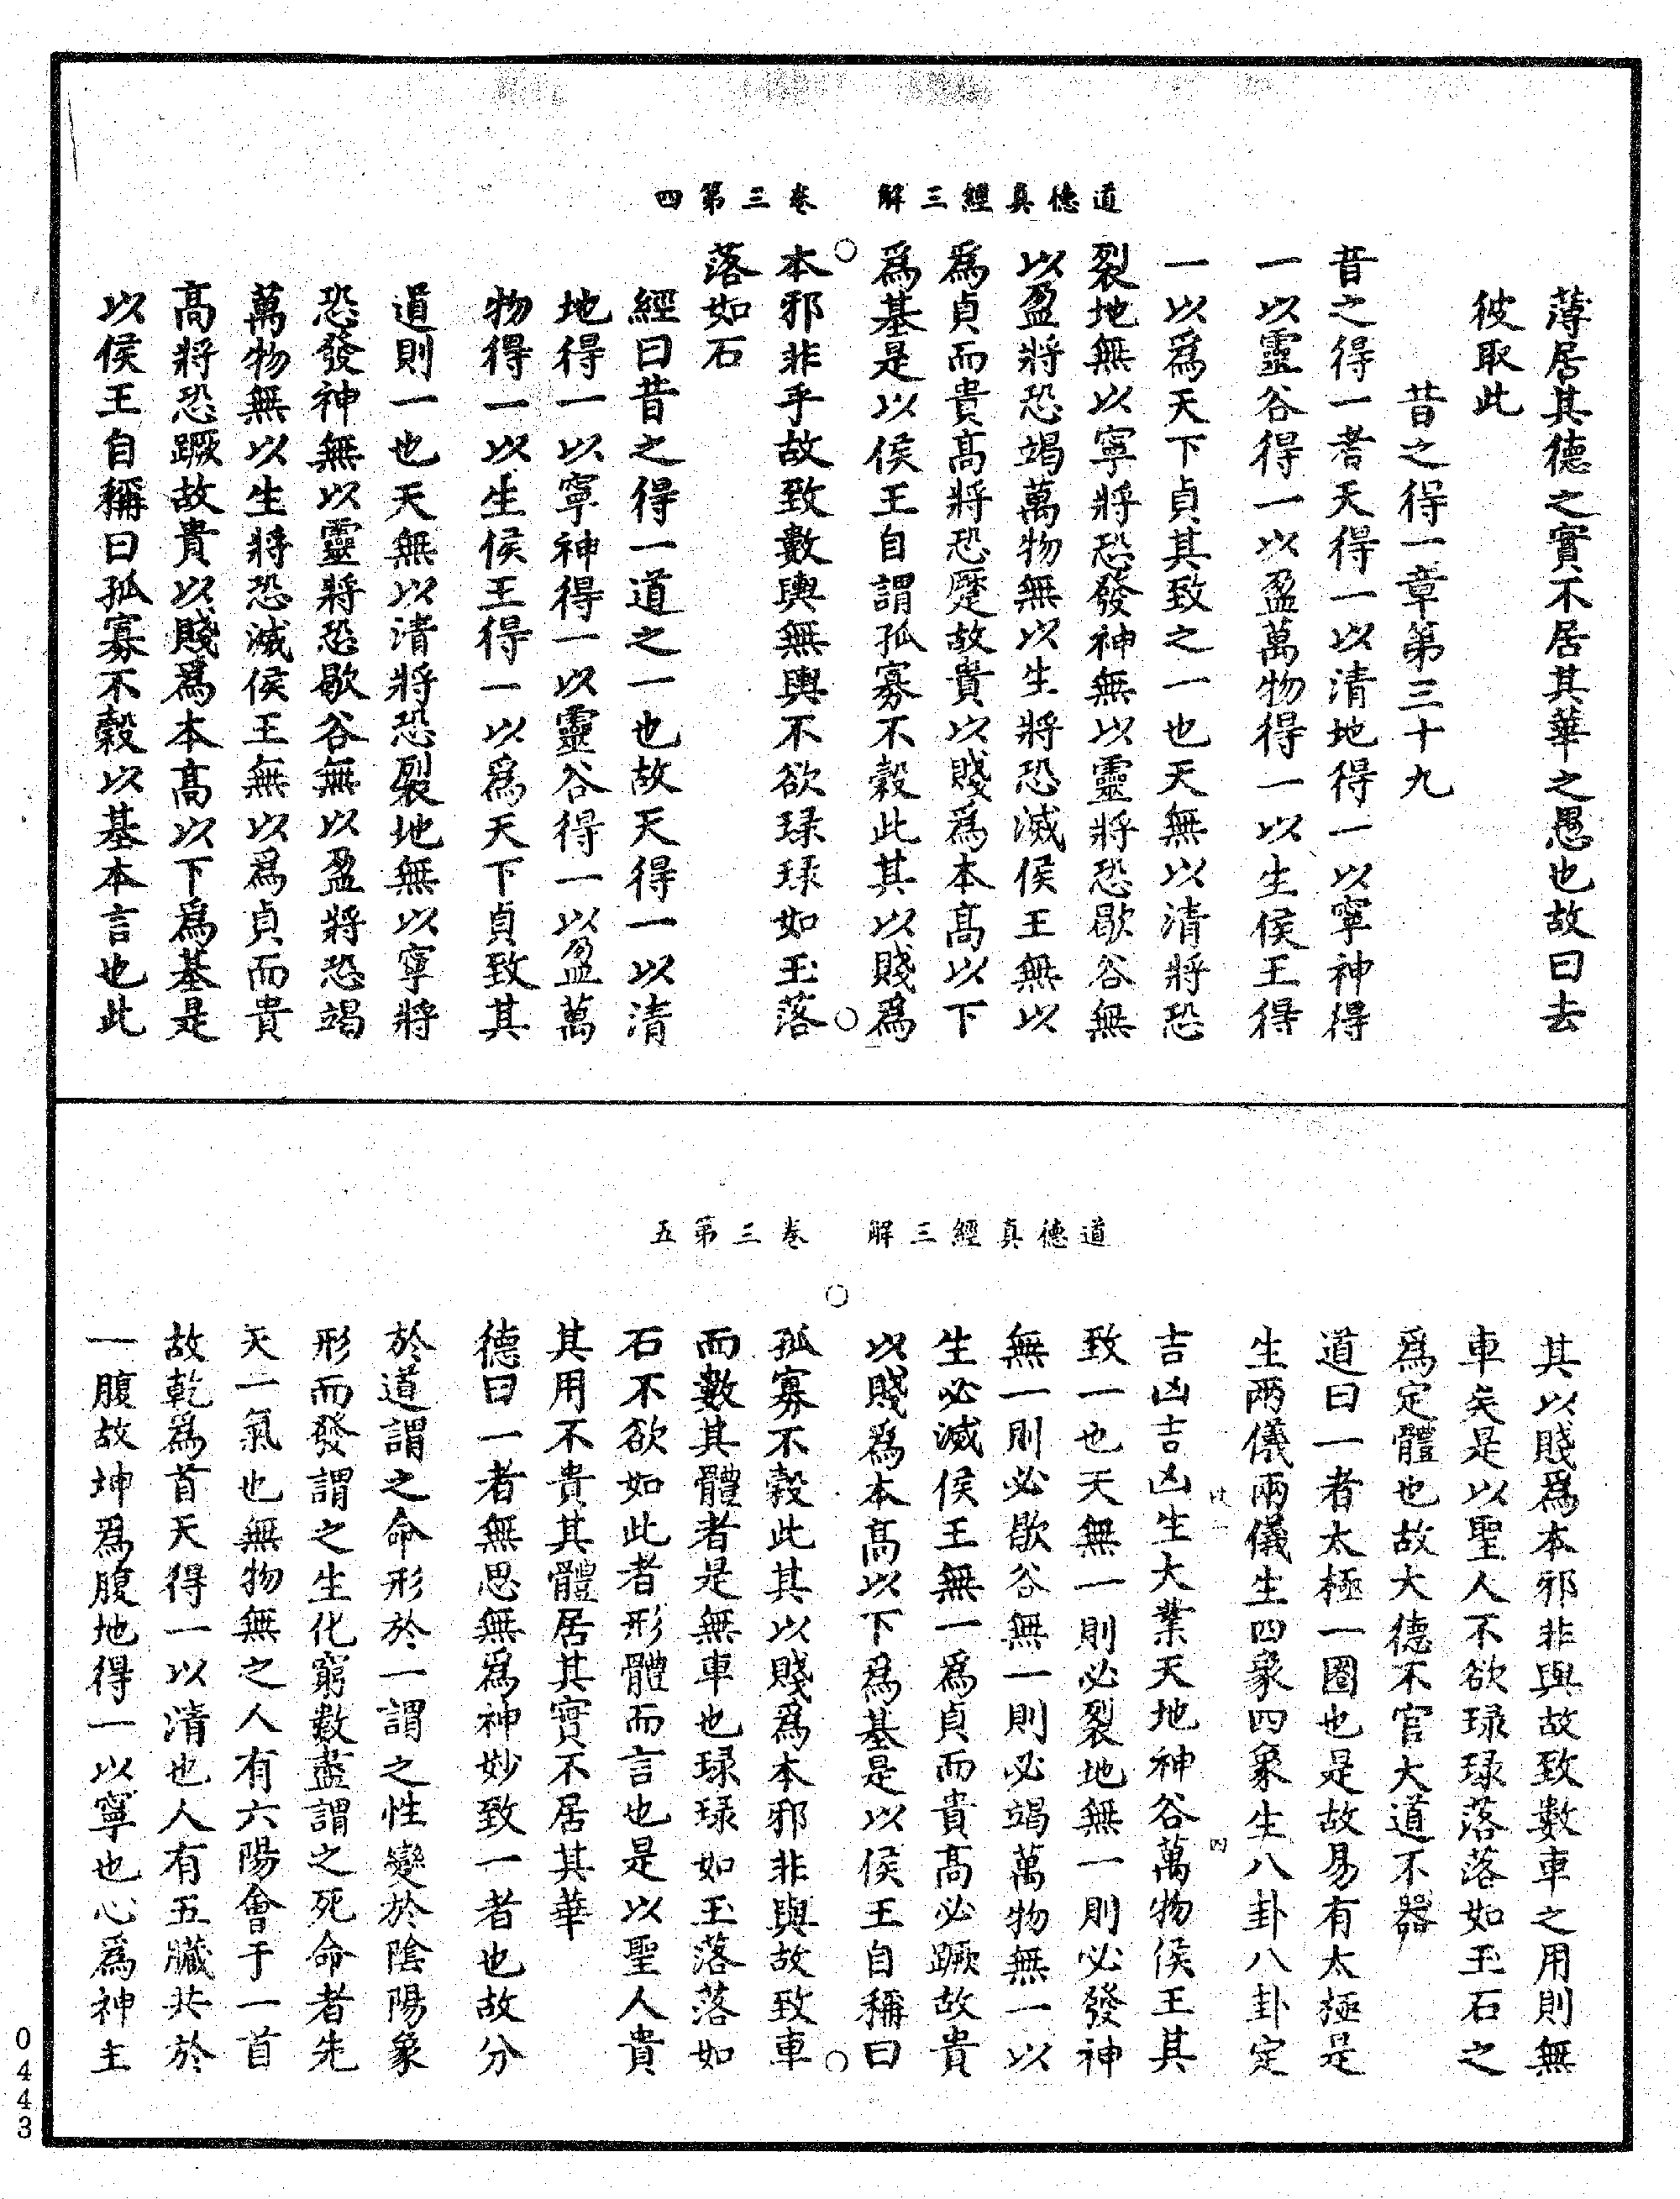 道德真經三解　卷三第四
薄居其德之實不居其華之愚也故曰去
彼取此
昔之得一章第三十九
昔之得一者天得一以清地得一以寧神得
一以靈谷得一以盈萬物得一以生侯王得
一以爲天下貞其致之一也天無以清將恐
裂地無以寧將恐發神無以靈將恐歇谷無
以盈將恐竭萬物無以生將恐滅侯王無以
爲貞而貴高將恐蹷故貴以賤爲本高以下
爲基是以侯王自謂孤寡不穀此其以賤爲
本邪非乎故致數輿無輿不欲琭琭如玉落
落如石
經曰昔之得一道之一也故天得一以清
地得一以寧神得一以靈谷得一以盈萬
物得一以生侯王得一以爲天下貞致其
道則一也天無以清將恐裂地無以寧將
恐發神無以靈將恐歇谷無以盈將恐竭
萬物無以生將恐滅侯王無以爲貞而貴
高將恐蹶故貴以賤爲本高以下爲基是
以侯王自稱曰孤寡不穀以基本言也此
道德真經三解　卷三第五
其以賤爲本邪非與故致數車之用則無
車矣是以聖人不欲琭琭落落如玉石之
爲定體也故大德不官大道不器
道曰一者太極一圈也是故易有太極是
生兩儀兩儀生四象四象生八卦八卦定
吉凶吉凶生大業天地神谷萬物侯王其
致一也天無一則必裂地無一則必發神
無一則必歇谷無一則必竭萬物無一以
生必滅侯王無一爲貞而貴高必蹶故貴
以賤爲本高以下爲基是以侯王自稱曰
孤寡不穀此其以賤爲本邪非與故致車
而數其體者是無車也琭琭如玉落落如
石不欲如此者形體而言也是以聖人貴
其用不貴其體居其實不居其華
德曰一者無思無爲神妙致一者也故分
於道謂之命形於一謂之性變於陰陽象
形而發謂之生化窮數盡謂之死命者先
天一氣也無物無之人有六陽會于一首
故乾爲首天得一以清也人有五臟共於
一腹故坤爲腹地得一以寧也心爲神主
0443